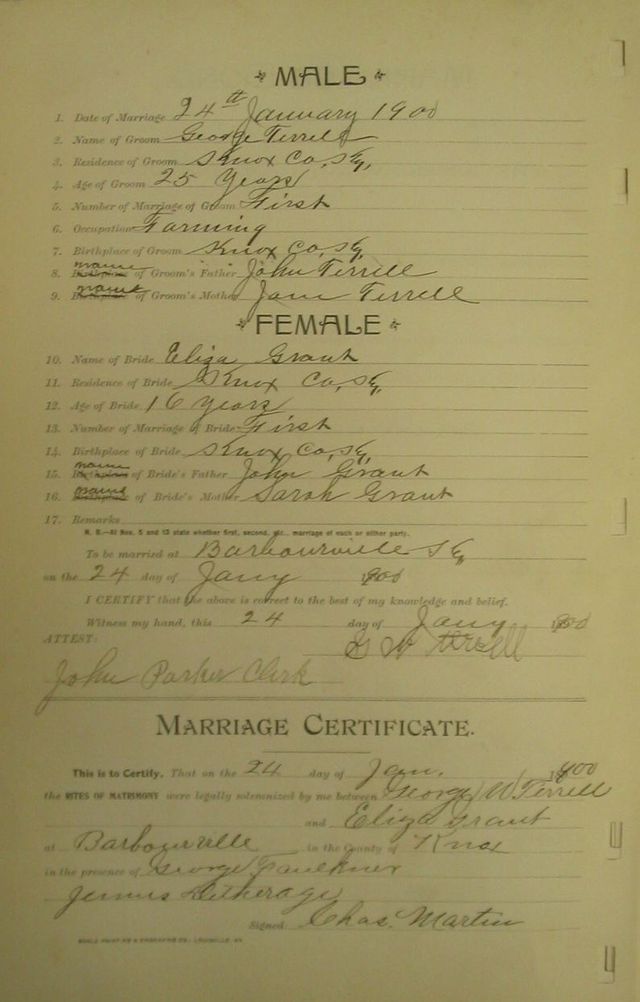 MALE
1. Date of Marriage 24th January 1900
2. Name of Groom George Terrell
3. Residence of Groom Knox Co, Ky,
4. Age of Groom 25 Years
5. Number of Marriage of Groom First
6. Occupation Farming
7. Birthplace of Groom Knox Co, Ky,
8. name of Groom's Father John Terrell
9. name of Groom's Mother Jane Terrell
FEMALE
10. Name of Bride Eliza Grant
11. Residence of Bride Knox Co, Ky,
12. Age of Bride 16 Years
13. Number of Marriage of Bride First
14. Birthplace of Bride Knox Co, Ky,
15. name of Bride's Father John Grant
16. name of Bride's Mother Sarah Grant
17. Remarks
N. B.—At Nos. 5 and 13 state whether first, second, etc., marriage of each or either party.
To be married at Barbourville Ky,
on the 24 day of Jany 1900
I CERTIFY that the above is correct to the best of my knowledge and belief.
Witness my hand, this 24 day of Jany 1900
ATTEST: G W Terrell
John Parker Clerk
MARRIAGE CERTIFICATE.
This is to Certify, That on the 24 day of Jan. 1900
the RITES OF MATRIMONY were legally solemnized by me between George W Terrell
and Eliza Grant
at Barbourville in the County of Knox
in the presence of George Faulkner
Detherage
Signed: Chas. Martin